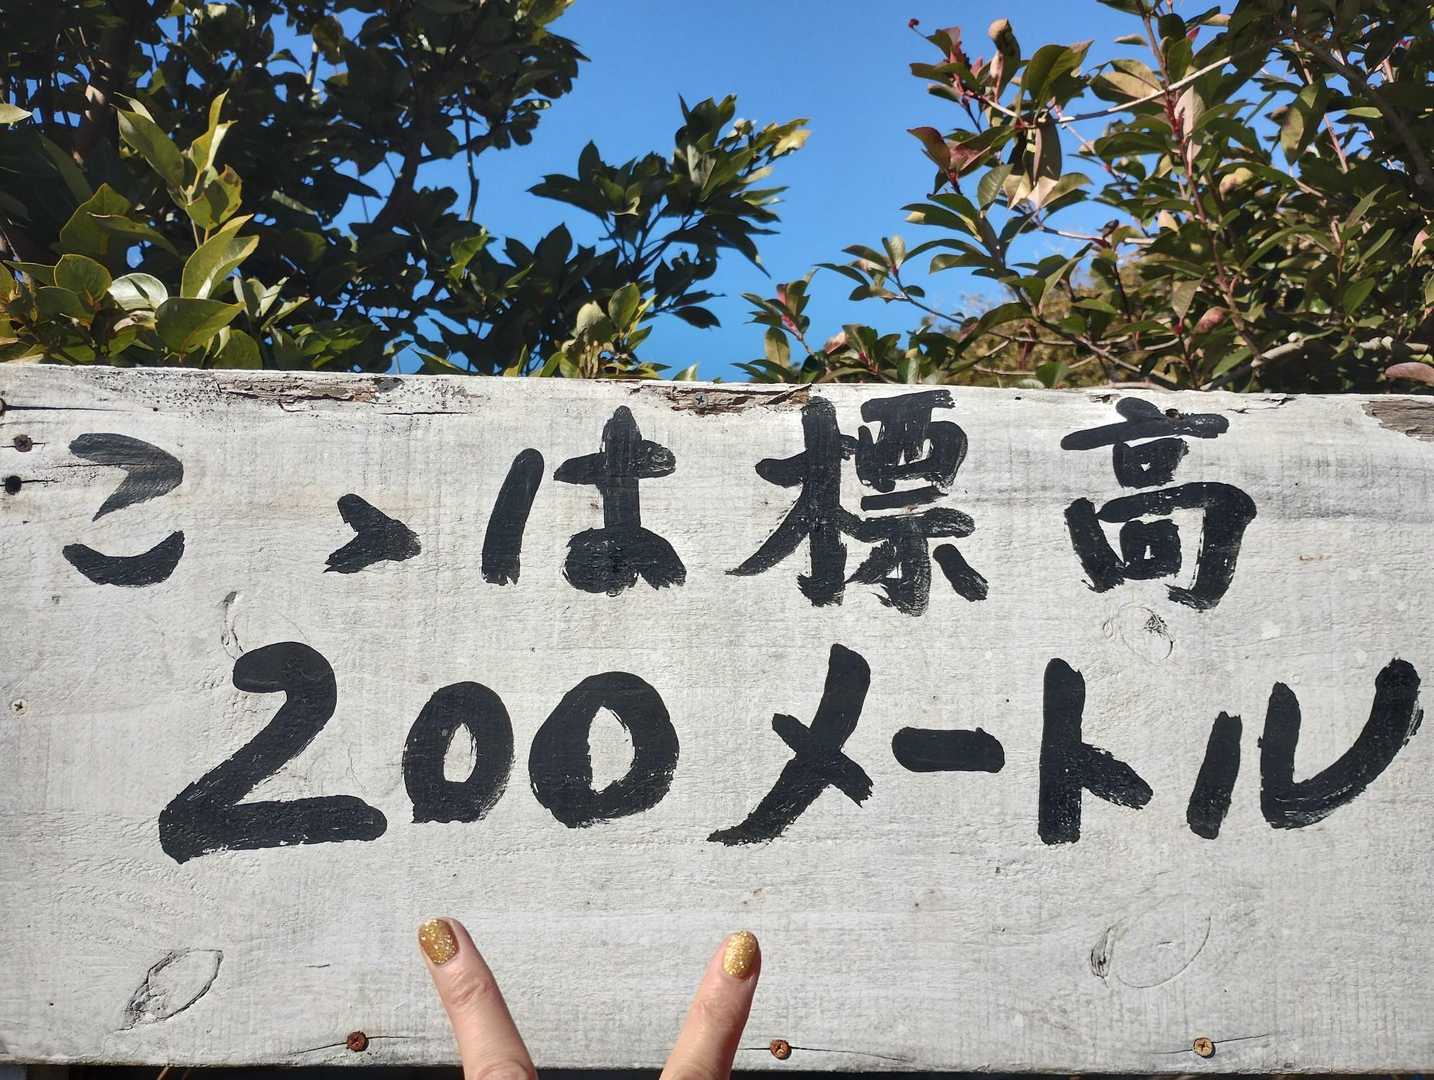 こゝは標高
200メートル